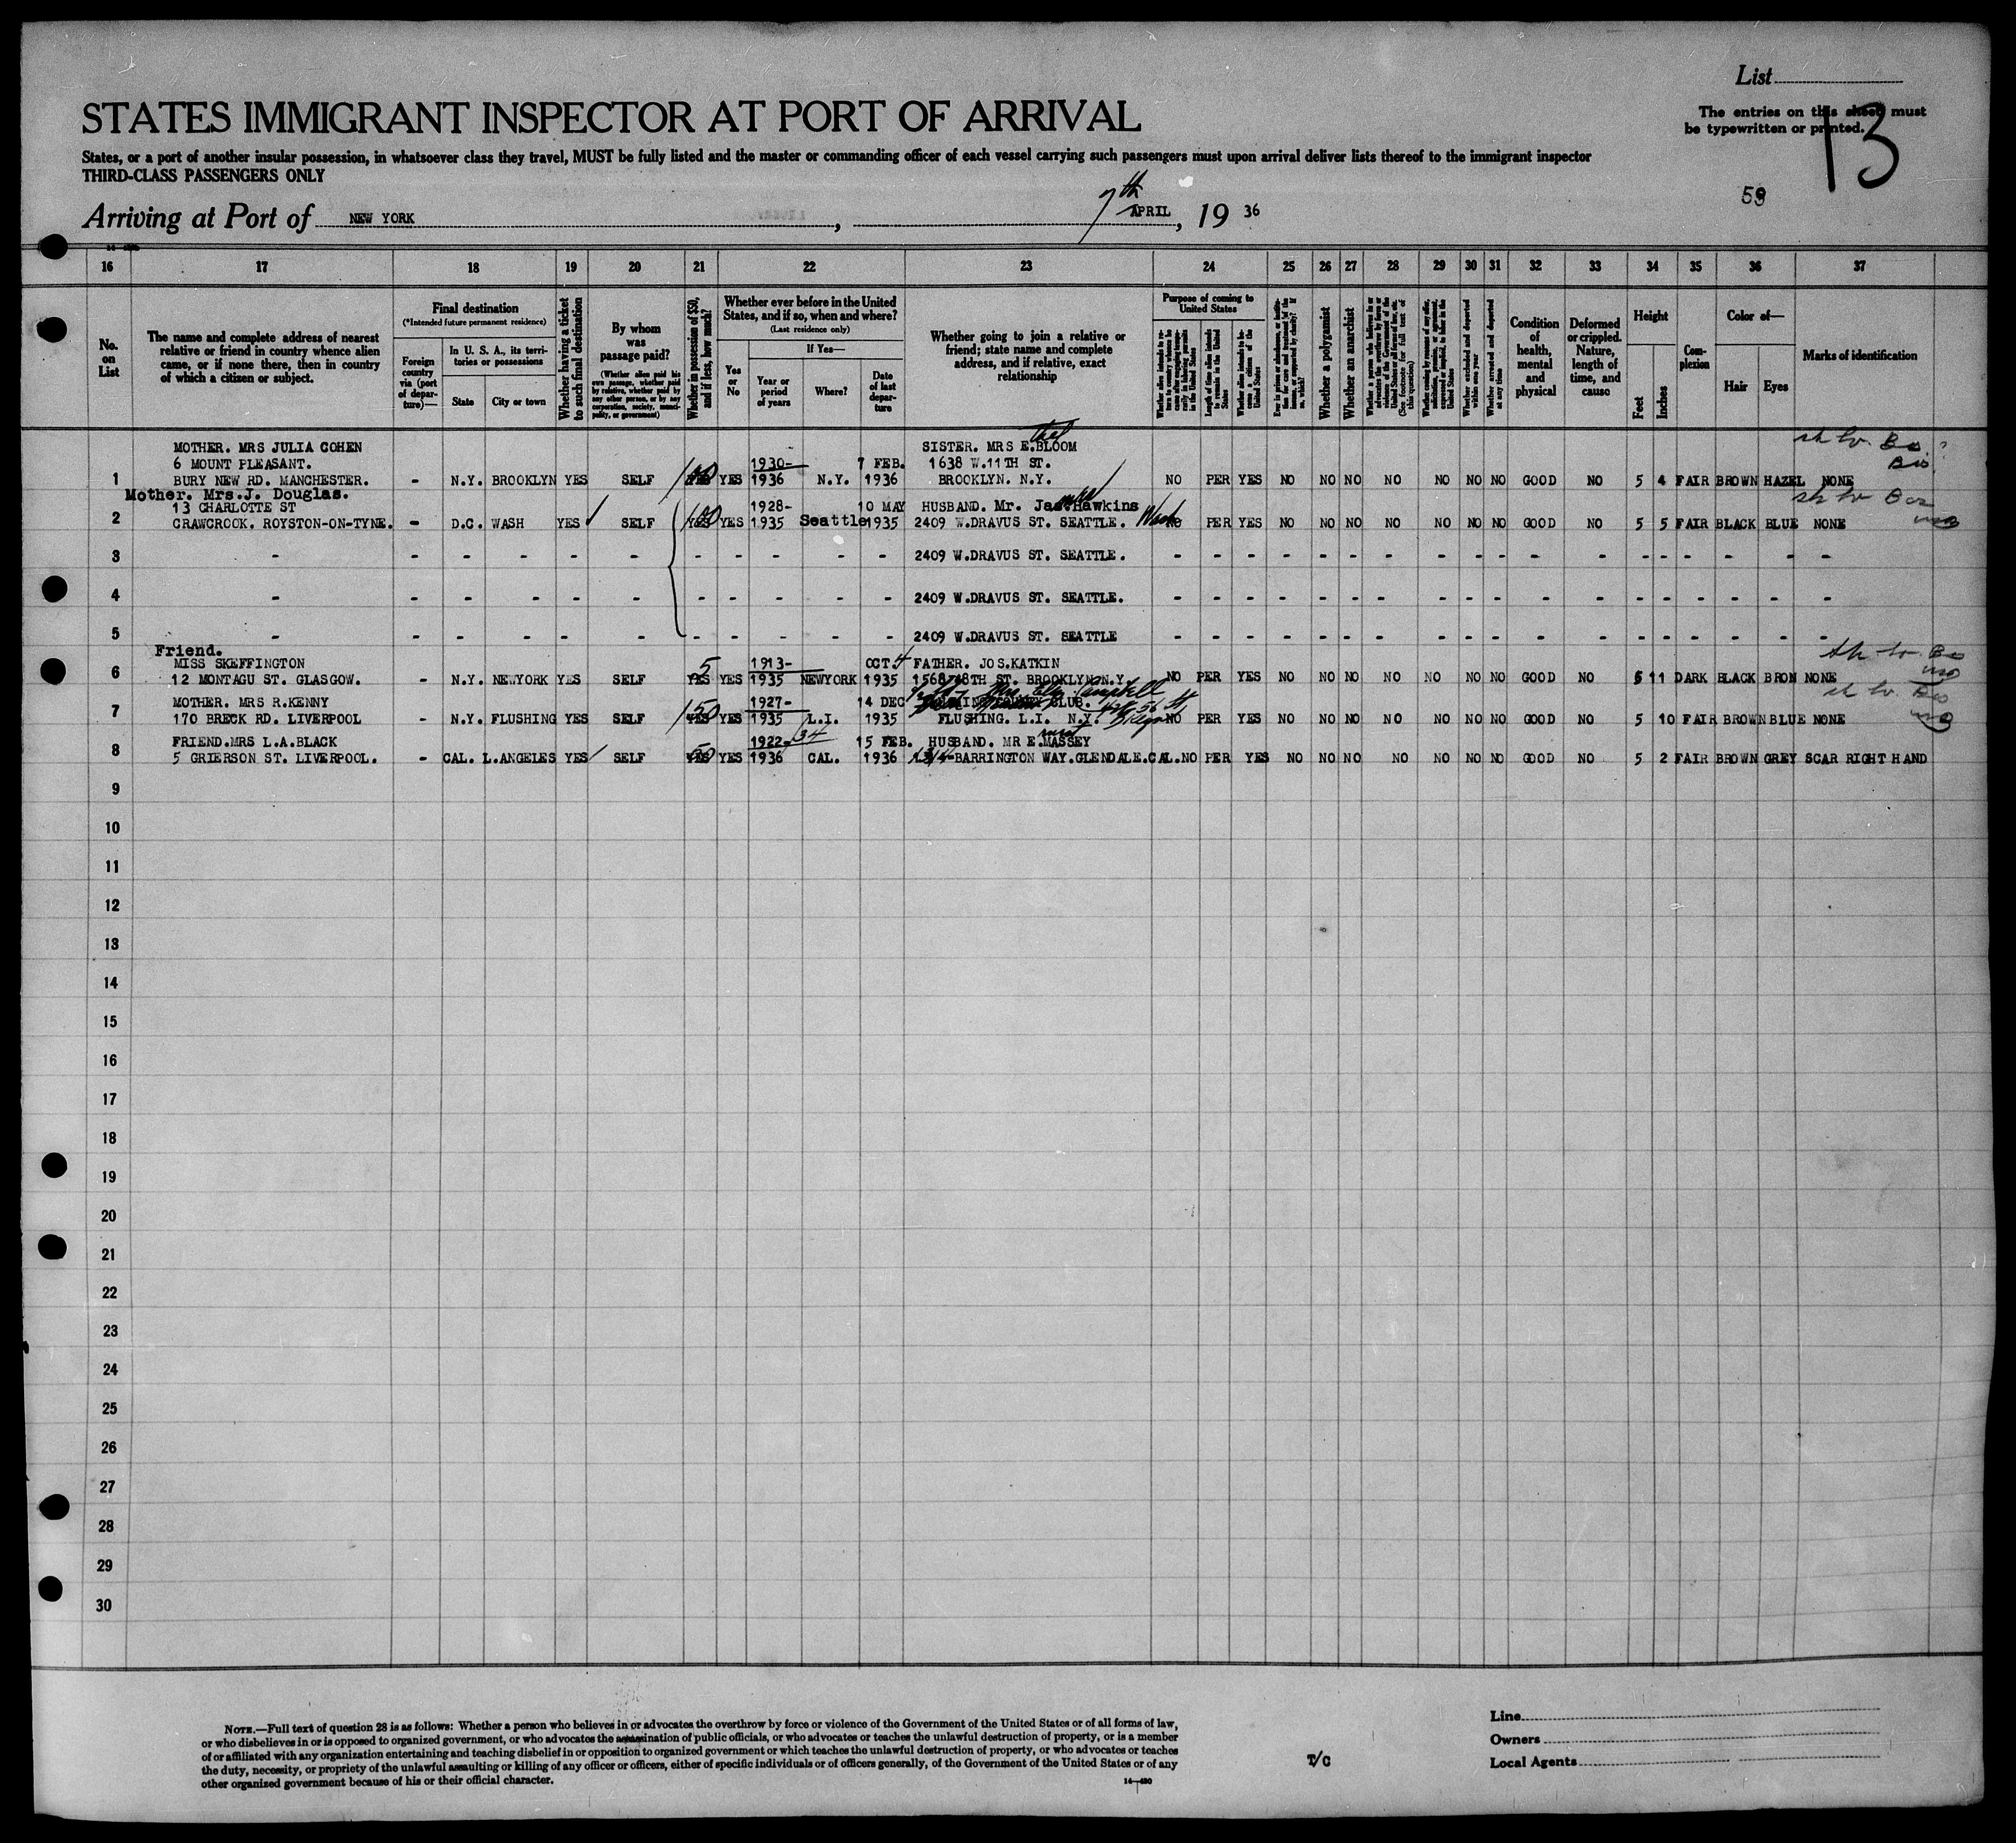 List
STATES IMMIGRANT INSPECTOR AT PORT OF ARRIVAL
The entries on this sheet must
be typewritten or printed.
13
States, or a port of another insular possession, in whatsoever class they travel, MUST be fully listed and the master or commanding officer of each vessel carrying such passengers must upon arrival deliver lists thereof to the immigrant inspector
THIRD-CLASS PASSENGERS ONLY
59
Arriving at Port of NEW YORK, 7th APRIL, 1936
16 17 18 19 20 21 22 23 24 25 26 27 28 29 30 31 32 33 34 35 36 37
No. on List
The name and complete address of nearest relative or friend in country whence alien came, or if none there, then in country of which a citizen or subject.
Final destination
(*Intended future permanent residence)
Foreign country via (port of departure)—
In U. S. A., its territories or possessions
State
City or town
Whether having a ticket to such final destination
By whom was passage paid?
(Whether alien paid his own passage, whether paid by relative, whether paid by any other person, or by any corporation, society, municipality, or government)
Whether in possession of $50, and if less, how much?
Whether ever before in the United States, and if so, when and where?
(Last residence only)
Yes or No
If Yes—
Year or period of years
Where?
Date of last departure
Whether going to join a relative or friend; state name and complete address, and if relative, exact relationship
Purpose of coming to United States
Length of time alien intends to remain in the United States
Whether alien intends to become a citizen of the United States
Whether a polygamist
Whether an anarchist
Whether excluded and deported within one year
Whether arrested and deported at any time
Condition of health, mental and physical
Deformed or crippled. Nature, length of time, and cause
Height
Feet
Inches
Complexion
Color of—
Hair
Eyes
Marks of identification
MOTHER. MRS JULIA COHEN SISTER. MRS E.BLOOM
6 MOUNT PLEASANT. 1930- 7 FEB. 1638 W.11TH ST.
1 BURY NEW RD. MANCHESTER. - N.Y. BROOKLYN YES SELF 100 YES 1936 N.Y. 1936 BROOKLYN. N.Y. NO PER YES NO NO NO NO NO NO NO GOOD NO 5 4 FAIR BROWN HAZEL NONE
Mother. Mrs.J. Douglas.
13 CHARLOTTE ST 1928- 10 MAY HUSBAND. Mr. Jas. Hawkins
2 CRAWCROOK. ROYSTON-ON-TYNE. - D.C. WASH YES SELF 100 YES 1935 Seattle 1935 2409 W.DRAVUS ST. SEATTLE. Wash NO PER YES NO NO NO NO NO NO NO GOOD NO 5 5 FAIR BLACK BLUE NONE
3 - - - - - - - - - - - 2409 W.DRAVUS ST. SEATTLE. - - - - - - - - - - - - - - - - - -
4 - - - - - - - - - - - 2409 W.DRAVUS ST. SEATTLE. - - - - - - - - - - - - - - - - - -
5 - - - - - - - - - - - 2409 W.DRAVUS ST. SEATTLE - - - - - - - - - - - - - - - - - -
Friend.
MISS SKEFFINGTON 5 1913- OCT.4 FATHER. JOS.KATKIN
6 12 MONTAGU ST. GLASGOW. - N.Y. NEWYORK YES SELF YES YES 1935 NEWYORK 1935 1568 48TH ST. BROOKLYN N.Y. NO PER YES NO NO NO NO NO NO NO GOOD NO 5 11 DARK BLACK BRON NONE
MOTHER. MRS R.KENNY 1927- 14 DEC Campbell CLUB.
7 170 BRECK RD. LIVERPOOL - N.Y. FLUSHING YES SELF 150 YES 1935 L.I. 1935 FLUSHING. L.I. N.Y. NO PER YES NO NO NO NO NO NO NO GOOD NO 5 10 FAIR BROWN BLUE NONE
FRIEND.MRS L.A.BLACK 1922-34 15 FEB. HUSBAND. MR E.MASSEY
8 5 GRIERSON ST. LIVERPOOL. - CAL. L.ANGELES YES SELF 50 YES 1936 CAL. 1936 BARRINGTON WAY.GLENDALE.CAL. NO PER YES NO NO NO NO NO NO NO GOOD NO 5 2 FAIR BROWN GREY SCAR RIGHT HAND
9
10
11
12
13
14
15
16
17
18
19
20
21
22
23
24
25
26
27
28
29
30
NOTE.—Full text of question 28 is as follows: Whether a person who believes in or advocates the overthrow by force or violence of the Government of the United States or of all forms of law,
or who disbelieves in or is opposed to organized government, or who advocates the assassination of public officials, or who advocates or teaches the unlawful destruction of property, or is a member
of or affiliated with any organization entertaining and teaching disbelief in or opposition to organized government or which teaches the unlawful destruction of property, or who advocates or teaches
the duty, necessity, or propriety of the unlawful assaulting or killing of any officer or officers, either of specific individuals or of officers generally, of the Government of the United States or of any
other organized government because of his or their official character.
14—430
T/C
Line
Owners
Local Agents